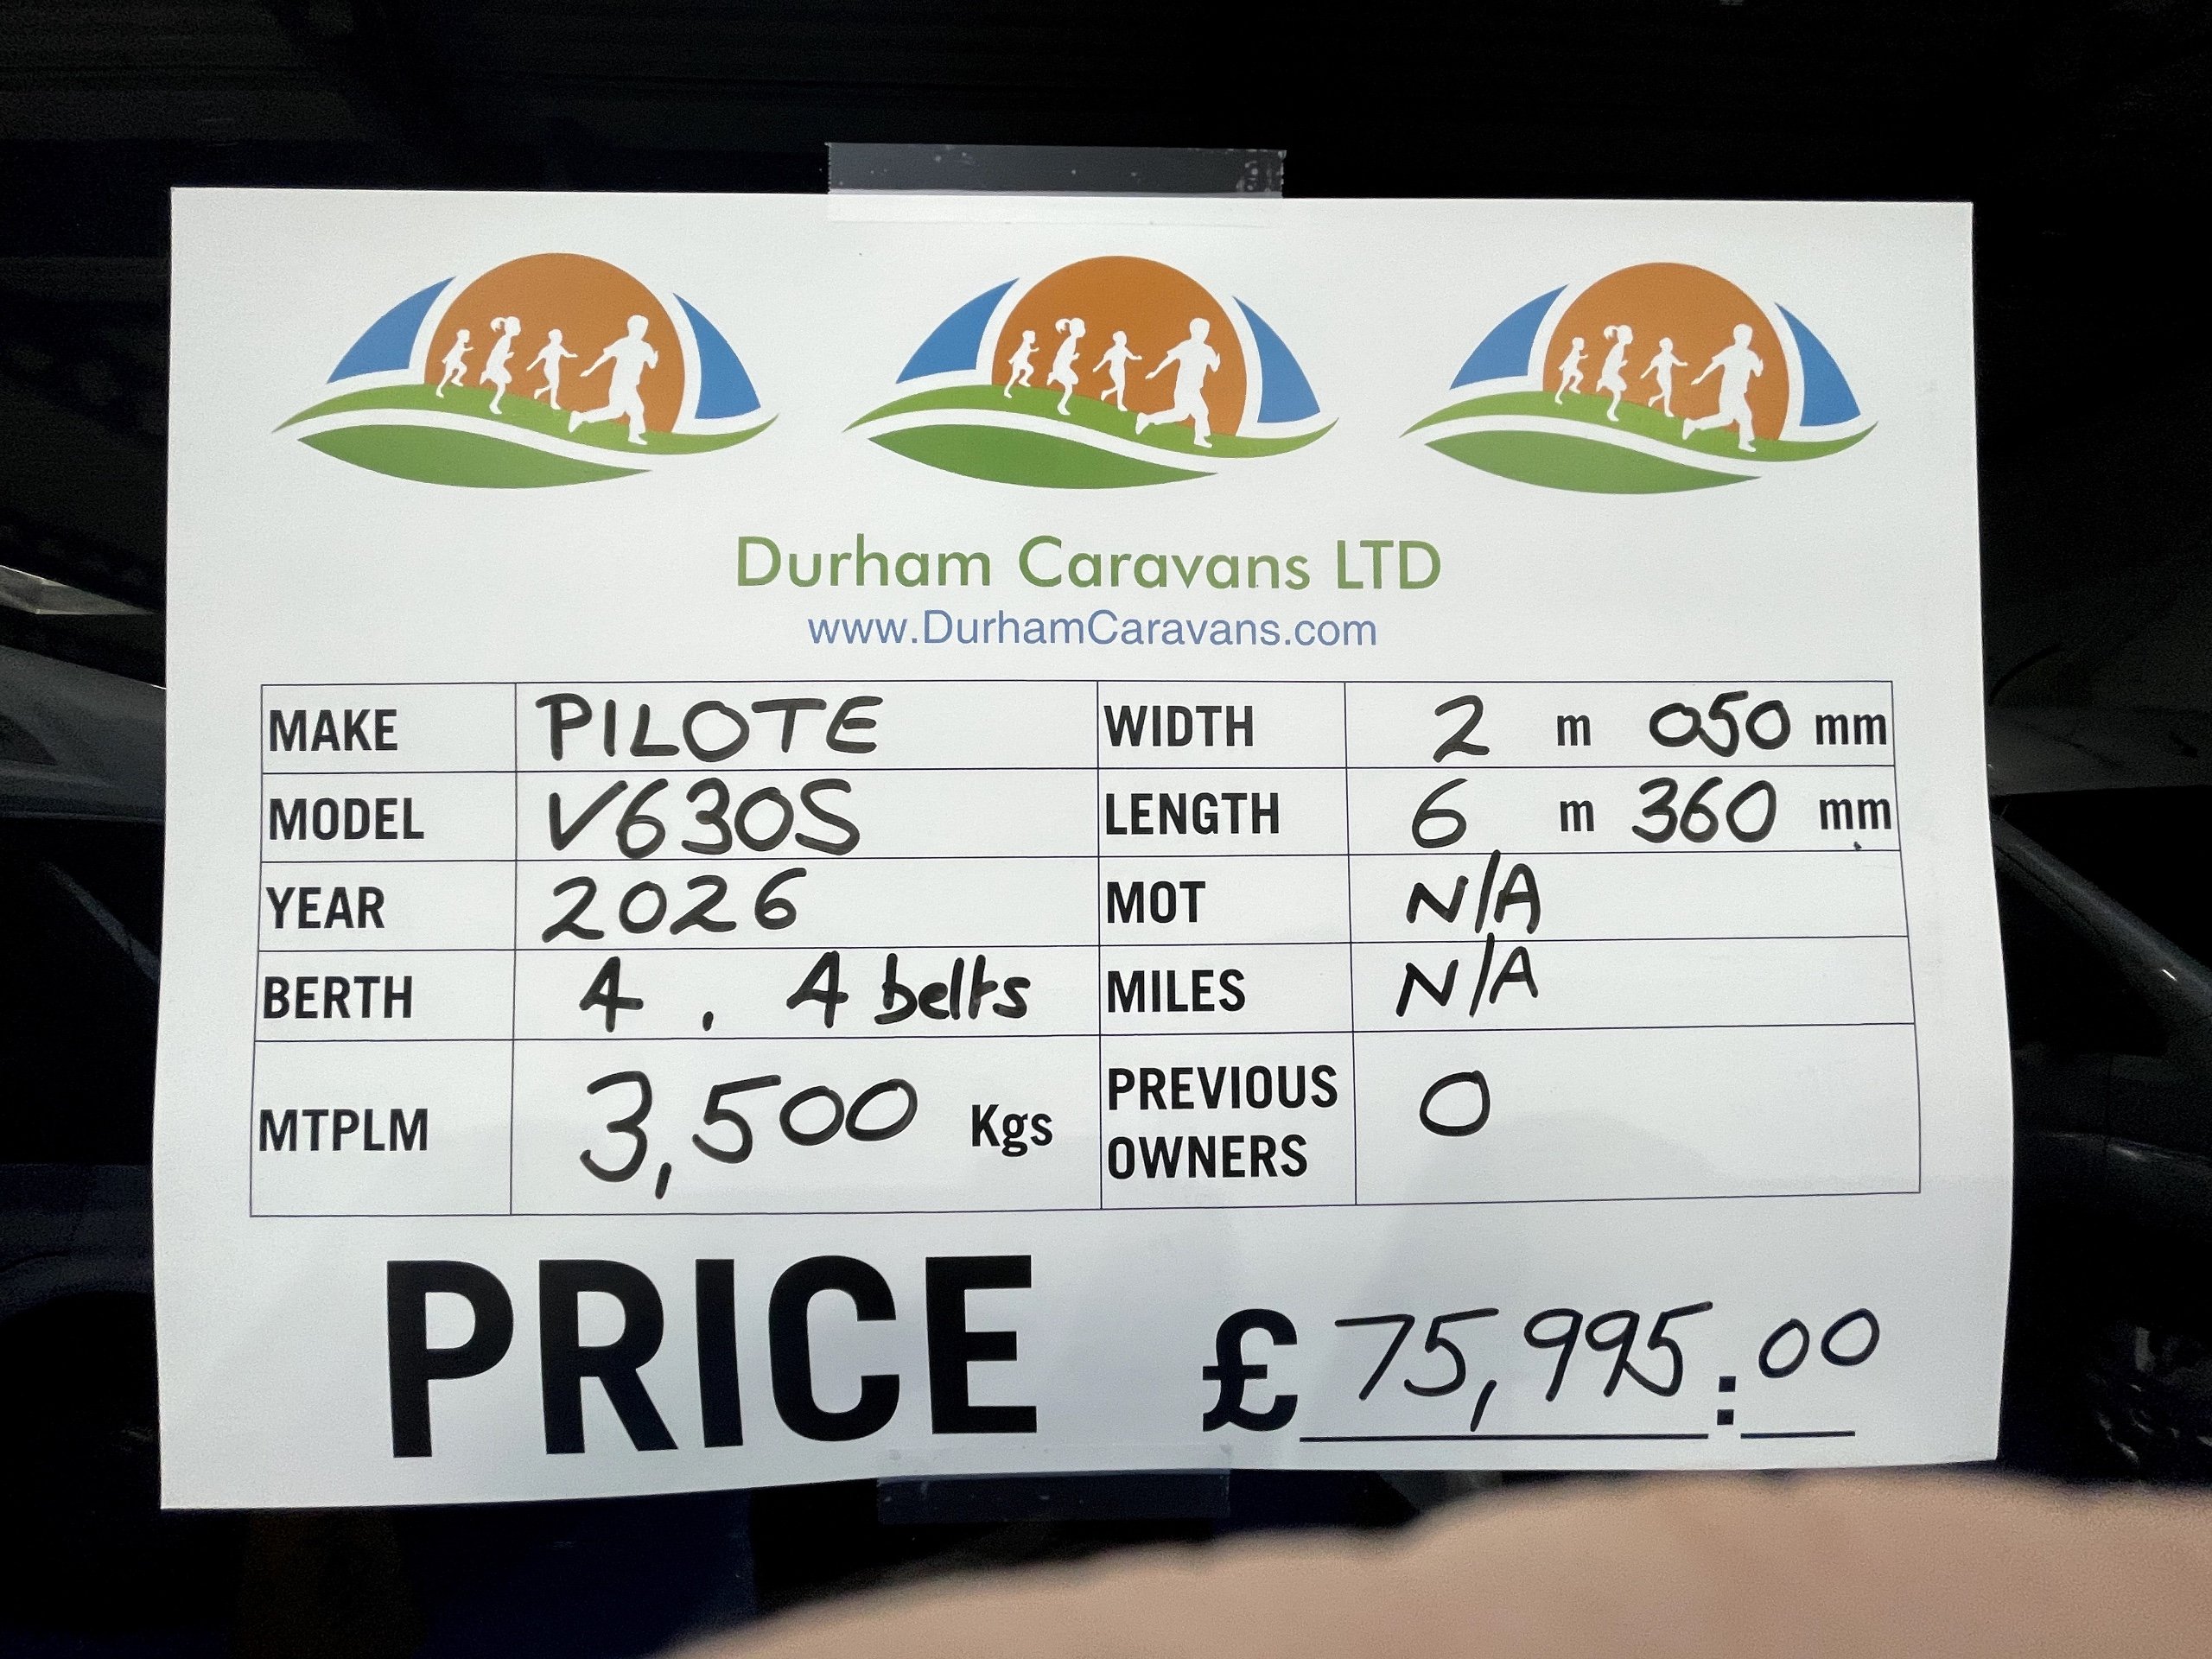 Durham Caravans LTD
www.DurhamCaravans.com
MAKE PILOTE WIDTH 2 m 050 mm
MODEL V630S LENGTH 6 m 360 mm
YEAR 2026 MOT N/A
BERTH 4 , 4 belts MILES N/A
MTPLM 3,500 Kgs PREVIOUS OWNERS 0
PRICE £75,995:00